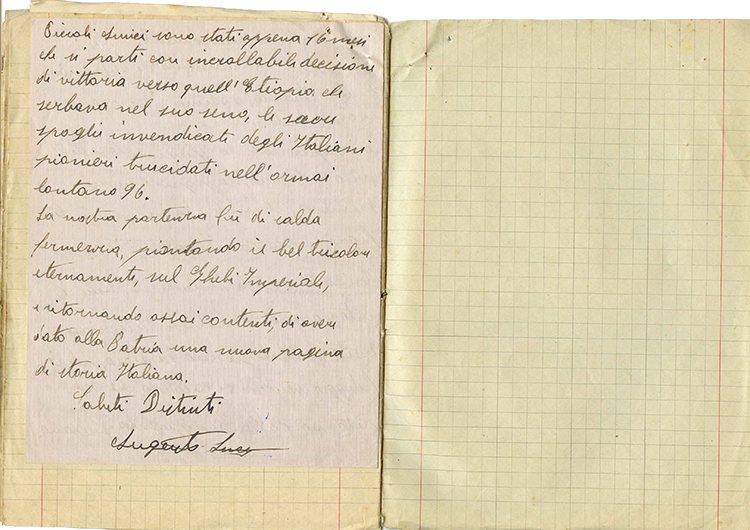 Piccoli Amici sono stati appena 16 mesi
che si partì con incrollabile decisione
di vittoria verso quell'Etiopia che
serbava nel suo seno, le sacre
spoglie invendicate degli Italiani
pionieri trucidati nell'ormai
lontano 96.
La nostra partenza fù di salda
fermezza, piantando il bel tricolore
eternamente, sul Ghebi Imperiale,
e ritornando assai contenti, di aver
dato alla Patria una nuova pagina
di storia Italiana.
Saluti Distinti